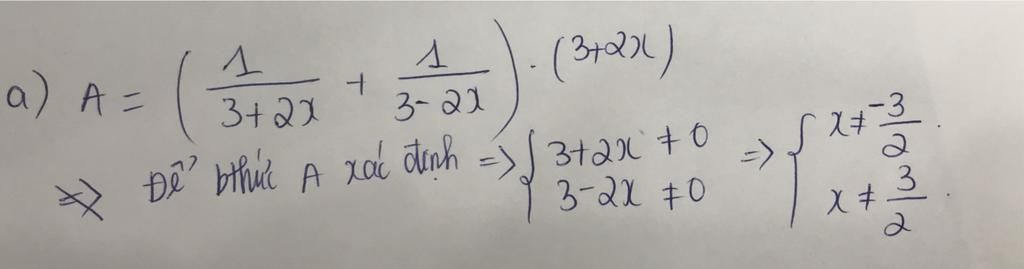 a) A = ( 1/(3+2x) + 1/(3-2x) ) . (3+2x)
=> Để bthức A xác định => { 3+2x ≠ 0 ; 3-2x ≠ 0 => { x ≠ -3/2 . ; x ≠ 3/2 .